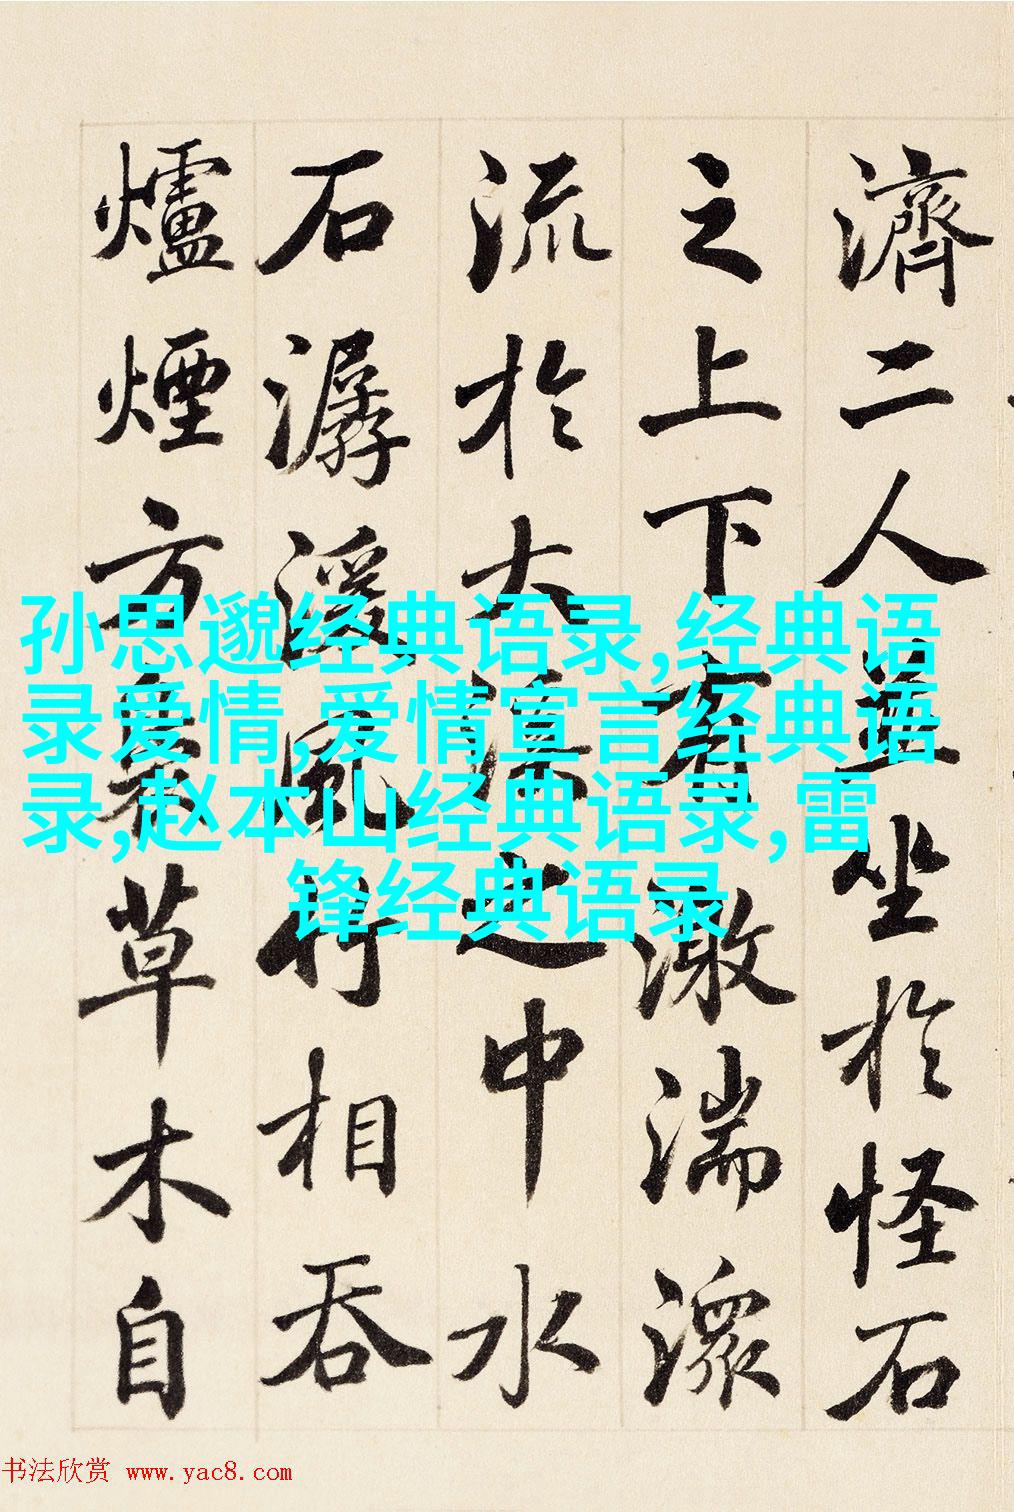 濟二人並坐於怪石
之上下有激湍潀
流於大溪之中水
石潺湲風竹相吞
爐煙方裊草木自
孙思邈经典语录,经典语
录爱情,爱情宣言经典语
录,赵本山经典语录,雷
锋经典语录
书法欣赏 www.yac8.com